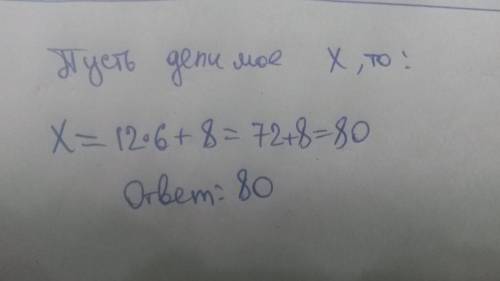 Пусть делимое X, то:
X = 12·6 + 8 = 72+8=80
Ответ: 80